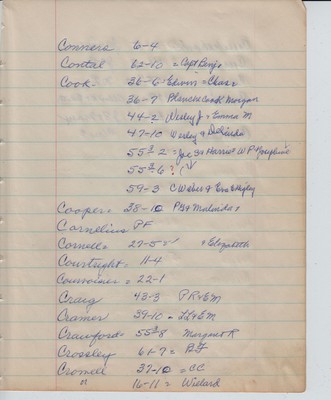 Conners 6-4
Contal 62-10 = Capt Benj.
Cook - 36-6 Edwin = Chas
36-7 Blanche Cook Morgan
44-2 Wesley J = Emma M
47-10 Wesley & Delinda
55 3/2 = Jos & Harriet W P & Josephine
55 3/6 ?
59-3 C Weber &
Cooper = 38-10 P B & Malinda
Cornelius PF
Cornell = 29-5 = Elizabeth
Courtright = 11-4
= 22-1
Craig 43-3 P R & E M
Cramer 39-10 = & E M
Crawford = 55 3/8 Margaret R
Crossley 61-7 =
Cromell 37-10 = CC
" 16-11 = Willard